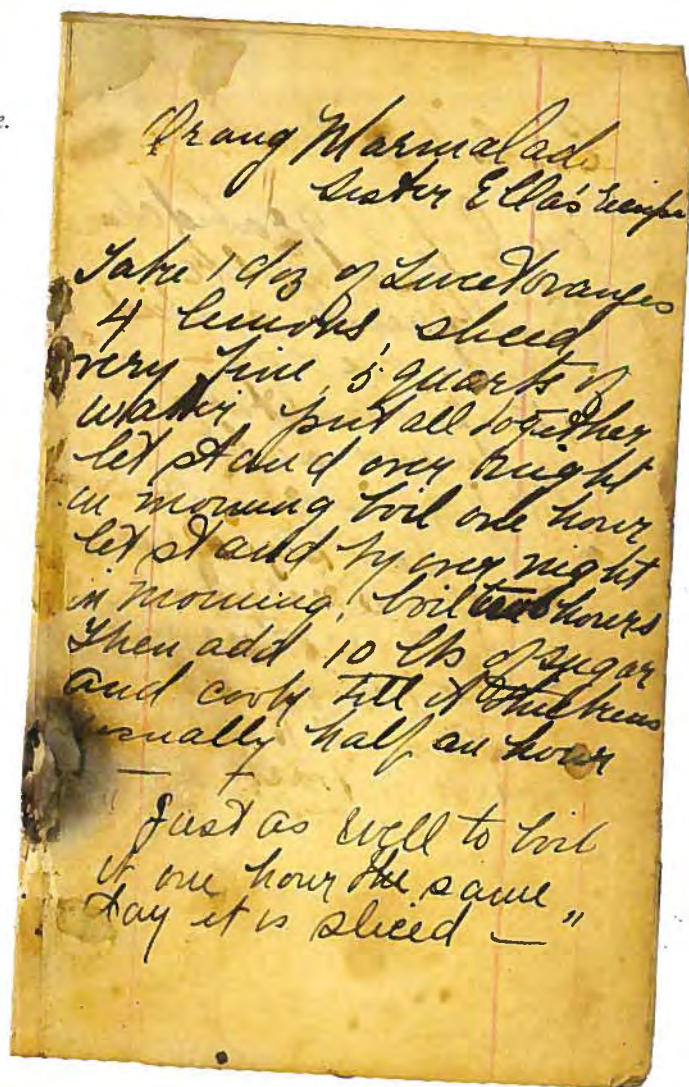 e.
Orang Marmalad
Sister Ella's
Take 1 doz of Sweet oranges
4 lemons, sliced
very fine, 5 quarts of
water put all together
let stand over night
in morning boil one hour
let stand by over night
in morning, boil two hours
Then add 10 lbs of sugar
and cook till it thickens
usually half an hour
"Just as well to boil
it one hour the same
day it is sliced — "